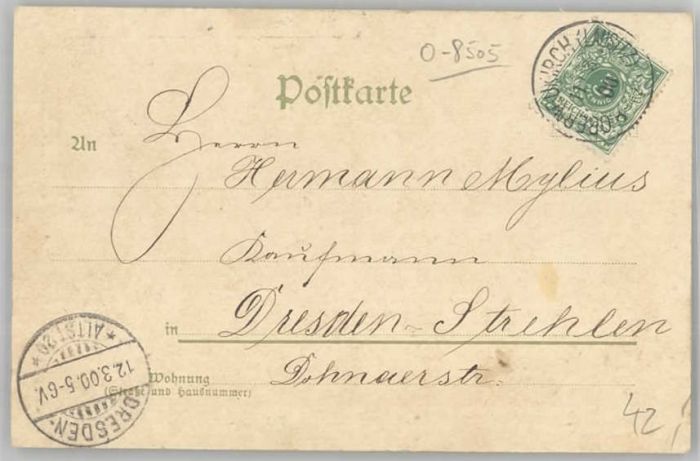 O-8505
Postkarte
An Herrn
Hermann Mylius
Kaufmann
in Dresden-Strehlen
Wohnung Dohnaerstr.
(Straße und Hausnummer)
42,
OBERNEUKIRCH (LAUSITZ)
DRESDEN-
ALTST. 20
12.3.00.5-6V.